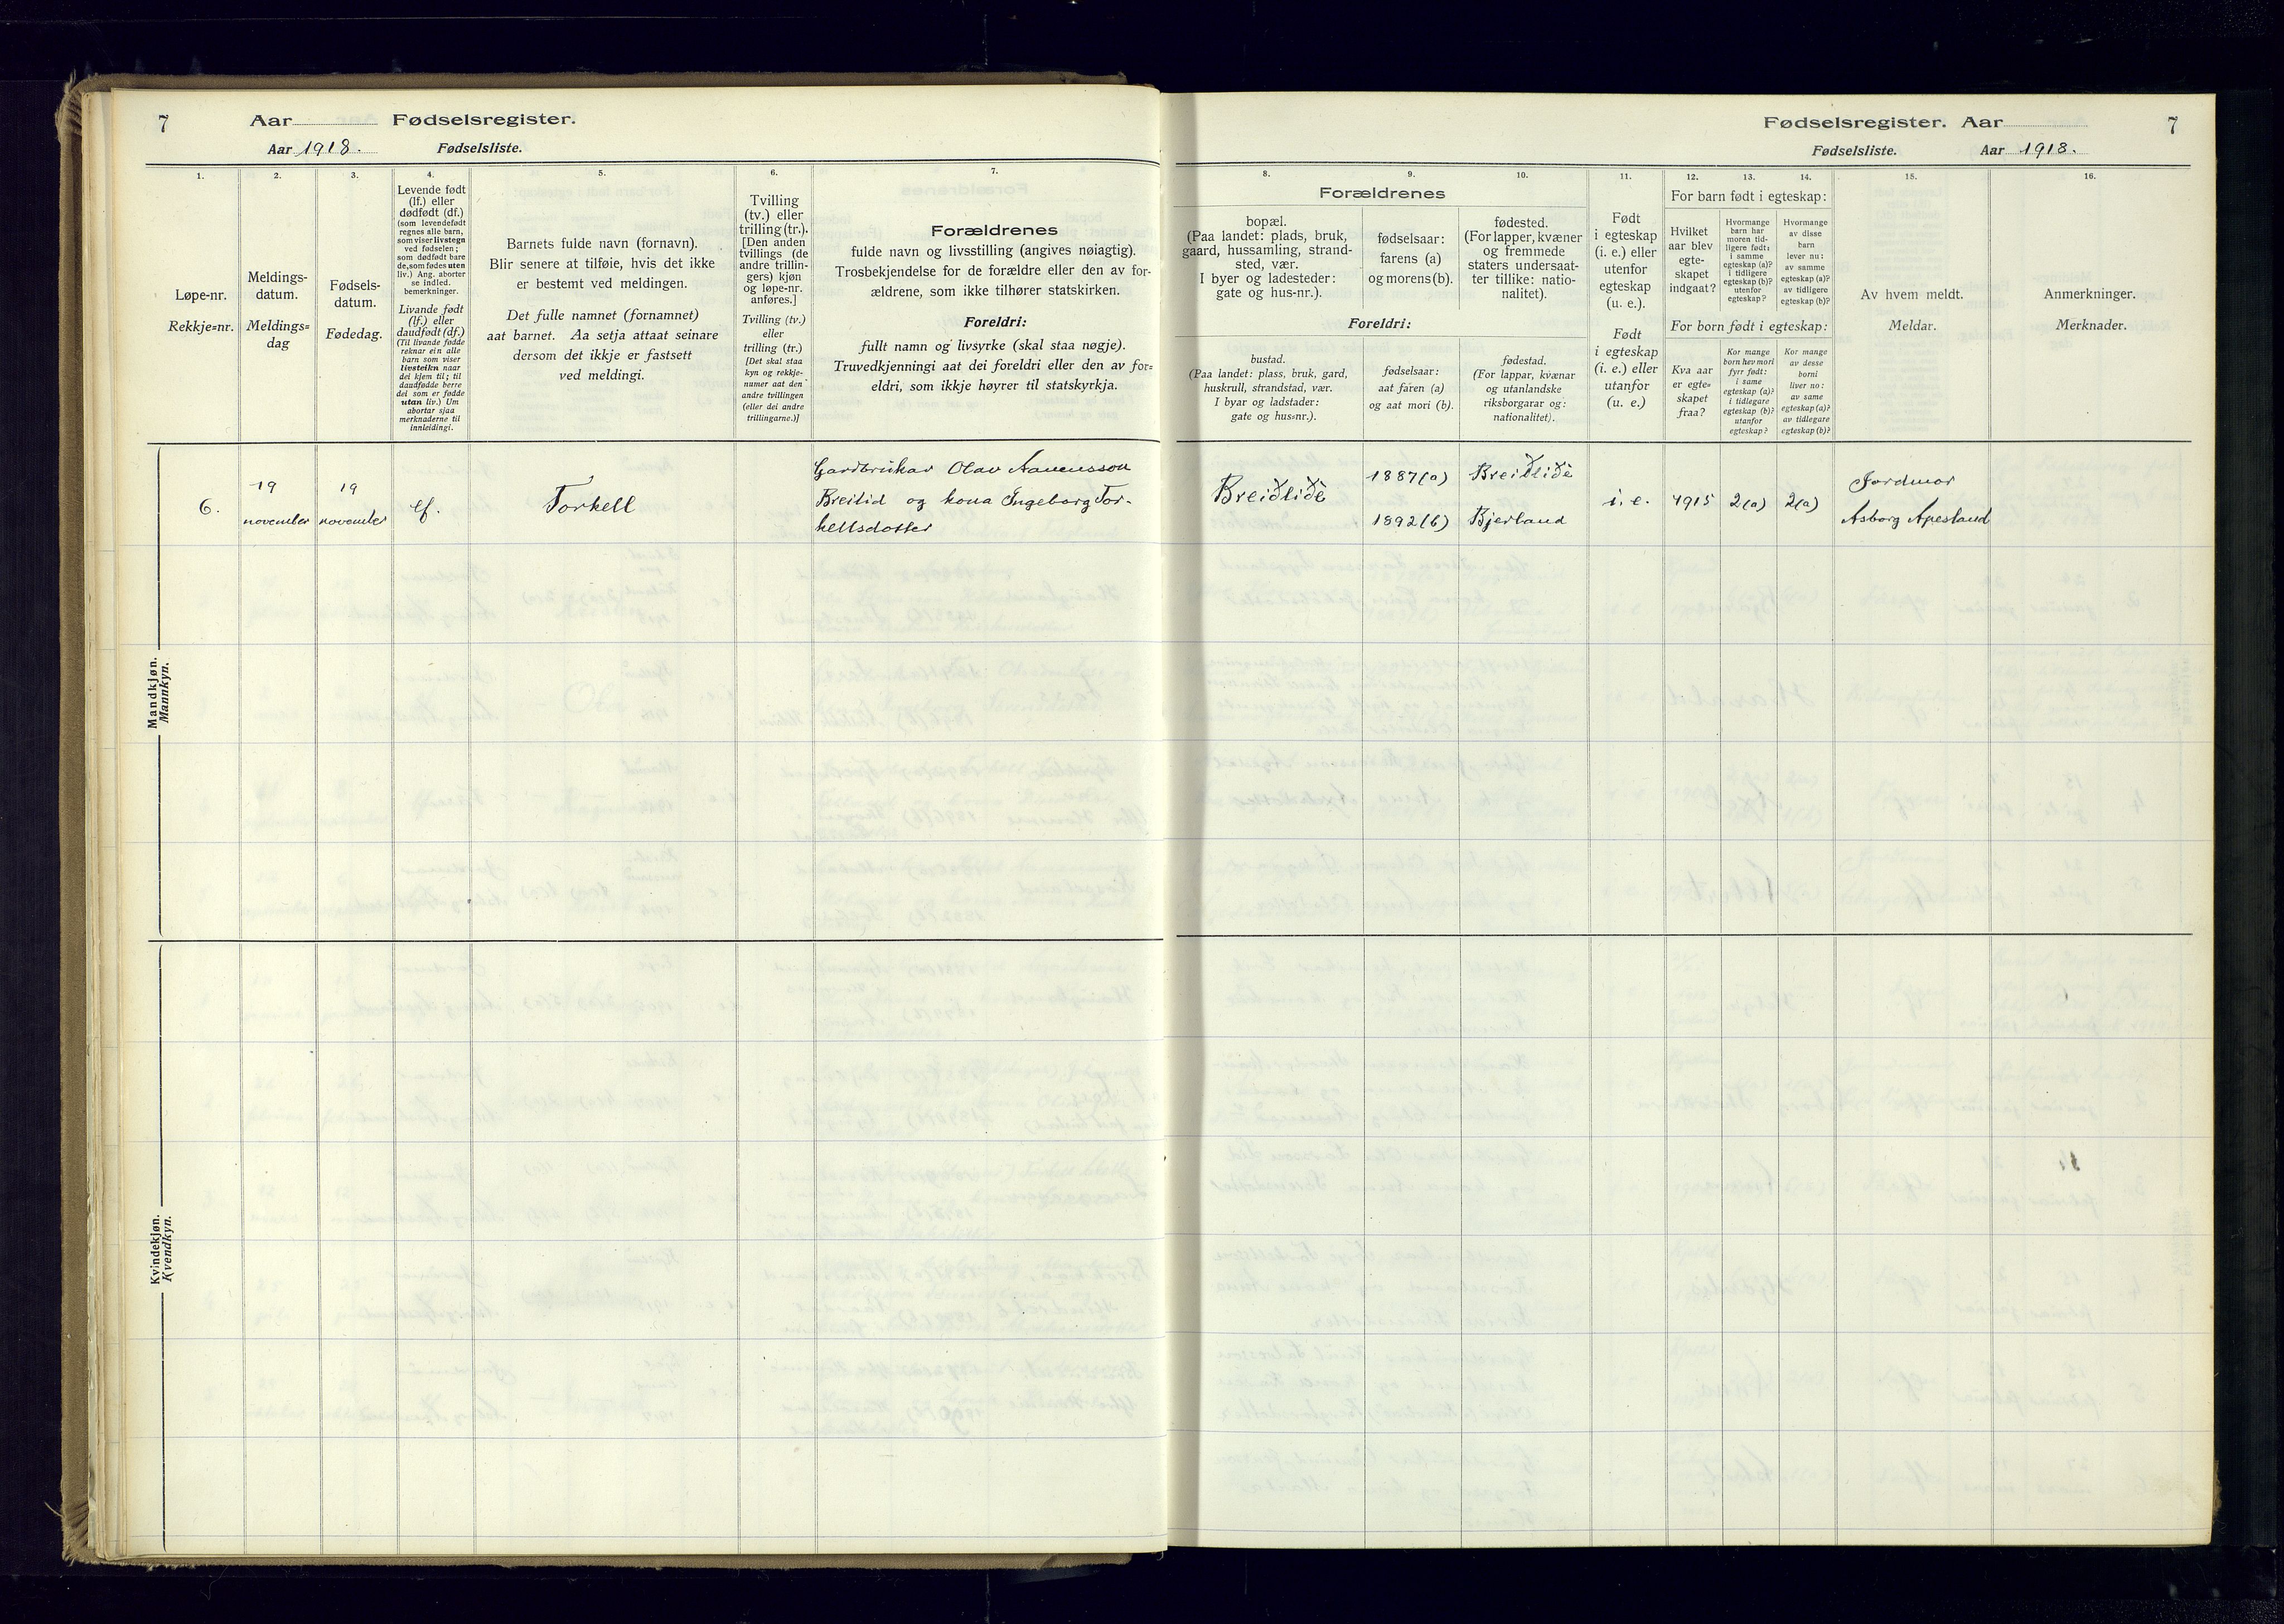 7
Aar Fødselsregister.
Aar 1918. Fødselsliste.
1.
Løpe-nr.
Rekkje=nr.
2.
Meldings-
datum.
Meldings=
dag
3.
Fødsels-
datum.
Fødedag.
4.
Levende født
(lf.) eller
dødfødt (df.)
(som levendefødt
regnes alle barn,
som viser livstegn
ved fødselen;
som dødfødt bare
de, som fødes uten
liv.) Ang. aborter
se indled.
bemerkninger.
Livande født
(lf.) eller
daudfødt (df.)
(Til livande fødde
reknar ein alle
barn som viser
livsteikn naar
dei kjem til; til
daudfødde berre
dei som er fødde
utan liv.) Um
abortar sjaa
merknaderne til
innleidingi.
5.
Barnets fulde navn (fornavn).
Blir senere at tilføie, hvis det ikke
er bestemt ved meldingen.
Det fulle namnet (fornamnet)
aat barnet. Aa setja attaat seinare
dersom det ikkje er fastsett
ved meldingi.
6.
Tvilling
(tv.) eller
trilling (tr.).
[Den anden
tvillings (de
andre trillin-
gers) kjøn
og løpe-nr.
anføres.]
Tvilling (tv.)
eller
trilling (tr.)
[Det skal staa
kyn og rekkje-
numer aat den
andre tvillingen
(eller dei andre
trillingarne.)]
7.
Forældrenes
fulde navn og livsstilling (angives nøiagtig).
Trosbekjendelse for de forældre eller den av for-
ældrene, som ikke tilhører statskirken.
Foreldri:
fullt namn og livsyrke (skal staa nøgje).
Truvedkjenningi aat dei foreldri eller den av for=
eldri, som ikkje høyrer til statskyrkja.
Mandkjøn.
Mannkyn.
6.
19
november
19
november
lf.
Torkell
Gardbrukar Olav Aanensson
Breilid og kona Ingeborg Tor-
kellsdotter
Kvindekjøn.
Kvendkyn.
Fødselsregister. Aar
7
Fødselsliste. Aar 1918.
8.
Forældrenes
bopæl.
(Paa landet: plads, bruk,
gaard, hussamling, strand-
sted, vær.
I byer og ladesteder:
gate og hus-nr.).
9.
fødselsaar:
farens (a)
og morens (b).
10.
fødested.
(For lapper, kvæner
og fremmede
staters undersaat-
ter tillike: natio-
nalitet).
Foreldri:
bustad.
(Paa landet: plass, bruk, gard,
huskrull, strandstad, vær.
I byar og ladstader:
gate og hus=nr.).
fødselsaar:
aat faren (a)
og aat mori (b).
fødestad.
(For lappar, kvænar
og utanlandske
riksborgarar og:
nationalitet).
11.
Født
i egteskap
(i. e.) eller
utenfor
egteskap
(u. e.).
Født
i egteskap
(i. e.) eller
utanfor
(u. e.)
12.
13.
14.
For barn født i egteskap:
Hvilket
aar blev
egte-
skapet
indgaat?
Hvormange
barn har
moren tid-
ligere født:
i samme
egteskap (a)?
i tidligere
egteskap (b)?
utenfor
egteskap?
Hvormange
av disse
barn
lever nu:
av samme
egteskap (a)?
av tidligere
egteskap (b)?
For born født i egteskap:
Kva aar
er egte=
skapet
fraa?
Kor mange
born hev mori
fyrr født:
i same
egteskap (a)?
i tidlegare
egteskap (b)?
utanfor
egteskap?
Kor mange
av desse
borni
liver no:
av same
egteskap (a)?
av tidlegare
egteskap (b)?
15.
Av hvem meldt.
Meldar.
16.
Anmerkninger.
Merknader.
Breiðliðe
1887(a)
1892(b)
Breiðliðe
Bjerland
i. e.
1915
2(a)
2(a)
Jordmor
Asborg Apesland